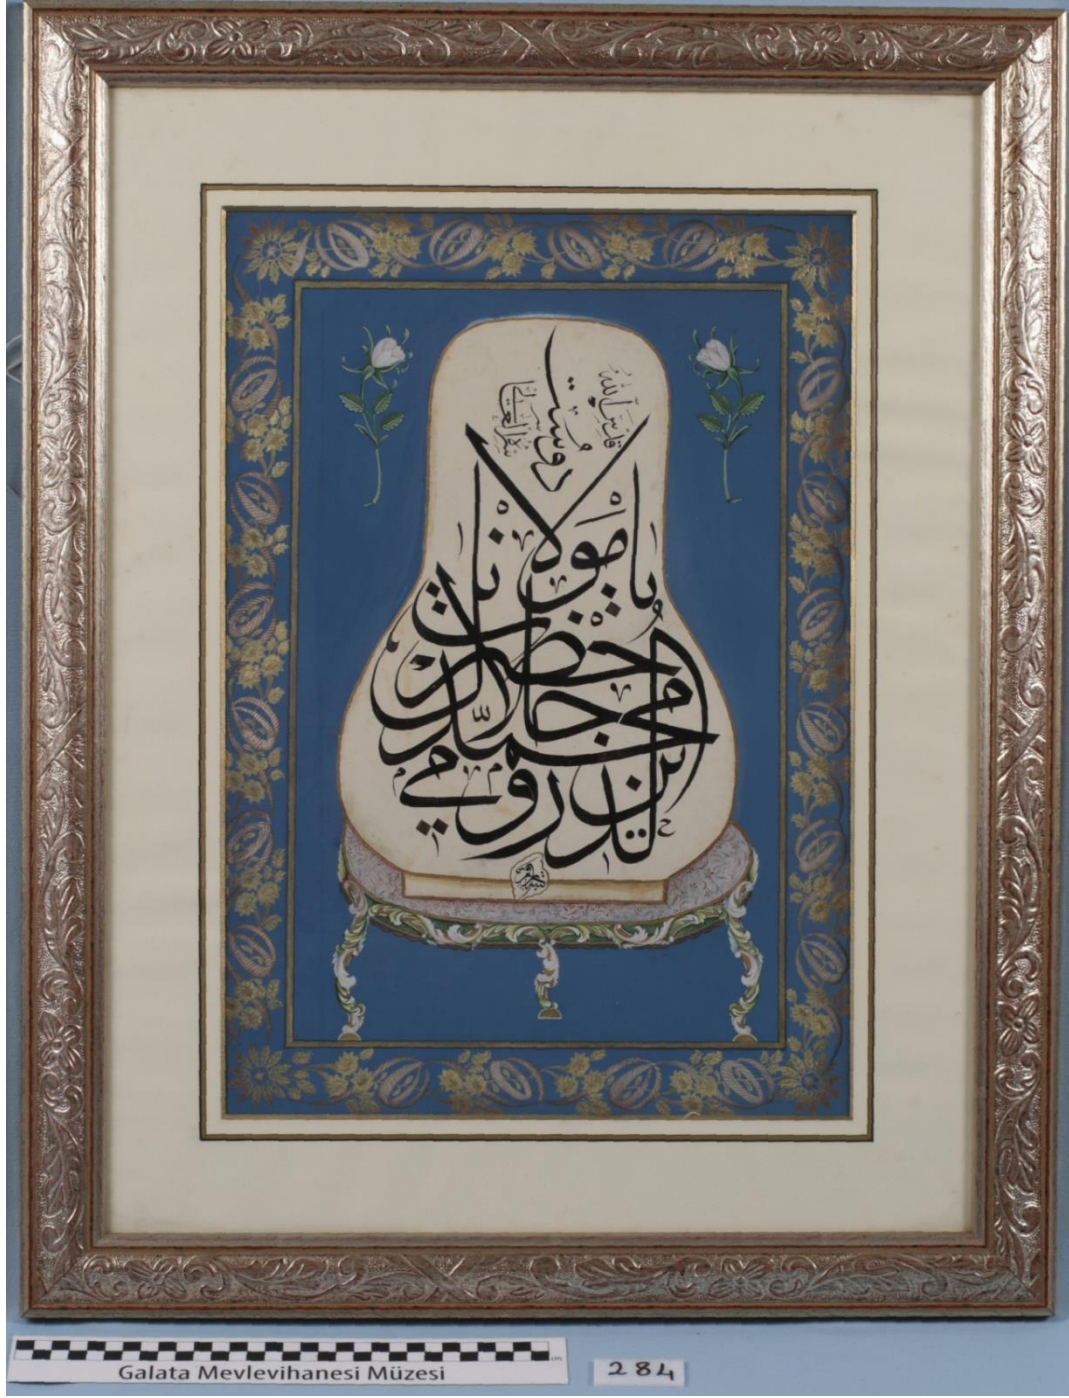 دوست
قدس الله
يا حضرت مولانا
محمد جلال الدين
رومي
Galata Mevlevihanesi Müzesi
284